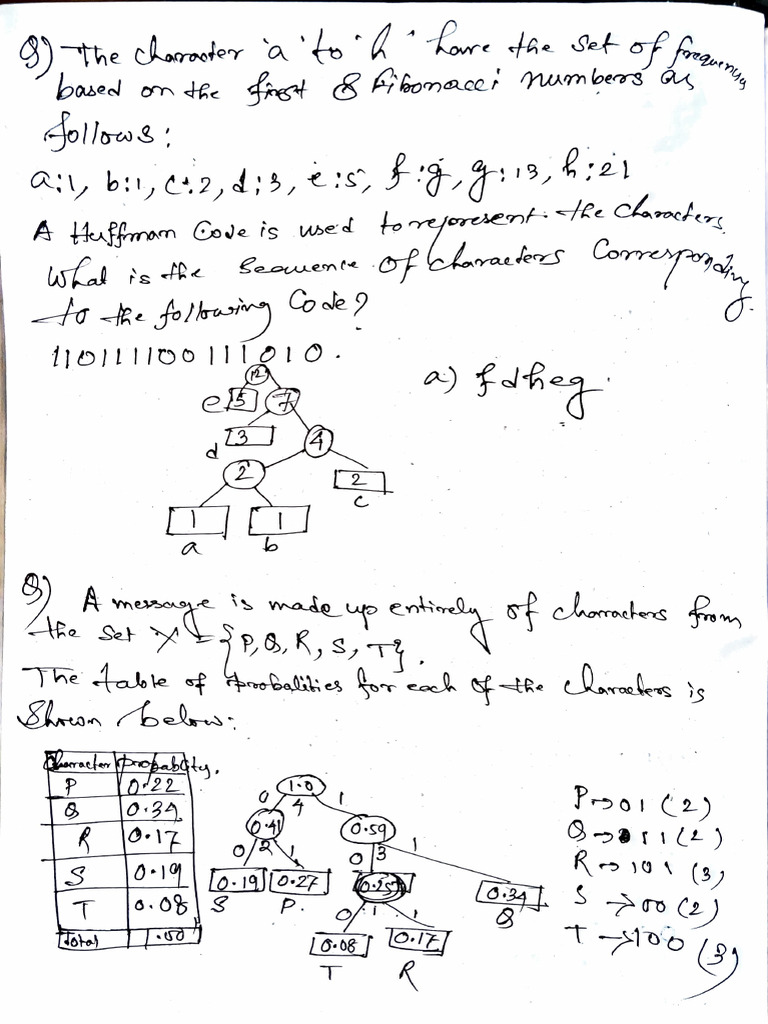 Q) The character 'a' to 'h' have the set of frequency
based on the first 8 Fibonacci numbers as
follows:
a:1, b:1, c:2, d:3, e:5, f:g, g:13, h:21
A Huffman Code is used to represent the characters.
What is the sequence of characters Corresponding
to the following Code?
110111100111010.
a) fdheg.
12
e 5 7
d 3 4
2 2
c
1 1
a b
Q) A message is made up entirely of characters from
the set X = {P, Q, R, S, T}.
The table of probalities for each of the characters is
Shown below:
Character probability.
P 0.22
Q 0.34
R 0.17
S 0.19
T 0.08
Total 1.00
1.0
0 4 1
0.41 0.59
0 2 1 0 3 1
0.19 0.27 0.25 0.34
S P. Q
0 1 1
0.08 0.17
T R
P → 01 (2)
Q → 11 (2)
R → 101 (3)
S → 00 (2)
T → 100 (3)